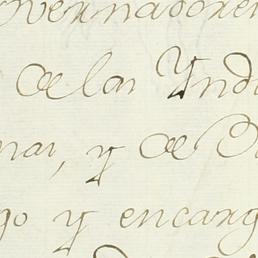 overnadores
de las Yndi
mas, y de Do
go y encarg